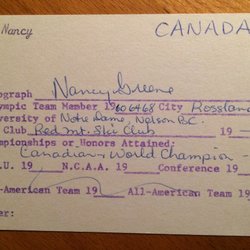 Nancy CANADA
ograph Nancy Greene
ympic Team Member 19 60 64 68 City Rossland
versity of Notre Dame, Nelson B.C.
Club Red Mt. Ski Club 19
mpionships or Honors Attained:
Canadian & World Champion
.U. 19 N.C.A.A. 19 Conference 19
-American Team 19 All-American Team 19
er: